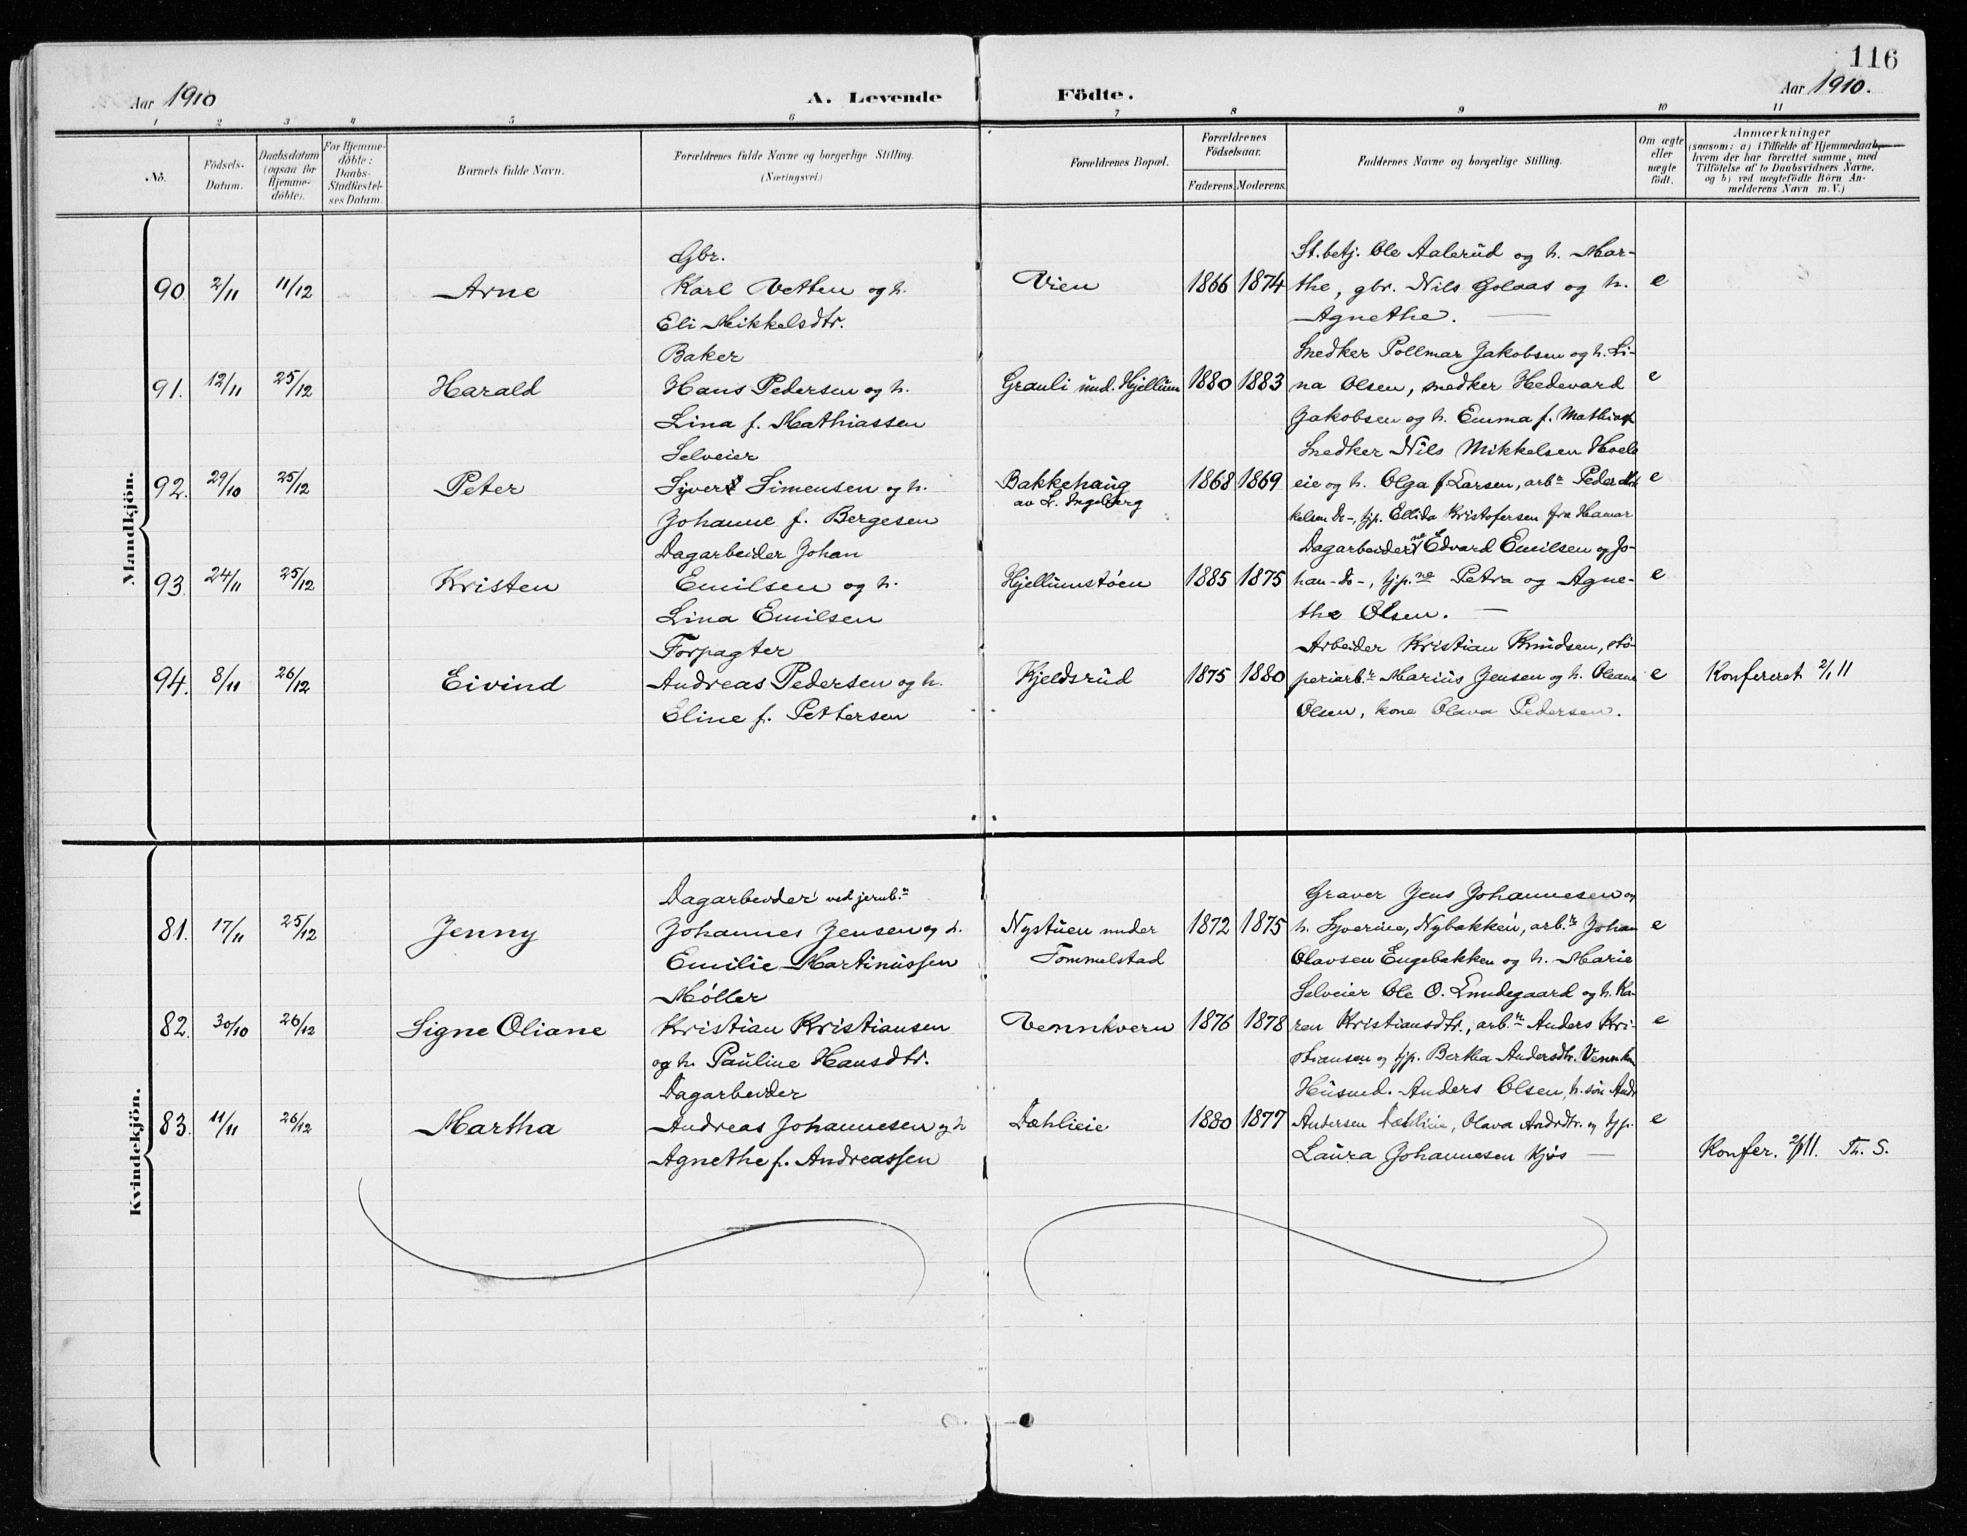 116
Aar 1910
A. Levende Födte.
Aar 1910.
1 2 3 4 5 6 7 8 9 10 11
No.
Födsels-Datum.
Daabsdatum (ogsaa for Hjemme-döbte).
For Hjemme-döbte: Daabs-Stadfæstel-ses Datum.
Barnets fulde Navn.
Forældrenes fulde Navne og borgerlige Stilling. (Næringsvei.)
Forældrenes Bopæl.
Forældrenes Födselsaar.
Faderens. Moderens.
Faddernes Navne og borgerlige Stilling.
Om ægte eller uægte födt.
Anmærkninger
(saasom: a) i Tilfælde af Hjemmedaab,
hvem der har forrettet samme, med
Tilföielse af to Daabsvidners Navne,
og b) ved uægtefödte Börn An-
melderens Navn m. V.)
Mandkjön.
90 2/11 11/12 Arne
Gbr.
Karl Vetten og h.
Eli Mikkelsdtr.
Vien 1866 1874
St.betj. Ole Aalerud og h. Mar-
the, gbr. Nils Golaas og h.
Agnethe. —
e
91. 12/11 25/12 Harald
Baker
Hans Pedersen og h.
Lina f. Mathiassen
Grauli und. Hjellum 1880 1883
Snedker Pollmar Jakobsen og h. Li-
na Olsen, snedker Hedevard
Jakobsen og h. Emma f. Mathias
e
92. 29/10 25/12 Peter
Selveier
Syver Simensen og h.
Johanne f. Bergesen
Bakkehaug
av L. Ingelberg
1868 1869
Snedker Nils Mikkelsen Hvele
eie og h. Olga f. Larsen, arbr Peder Mik
kelsen Do-, pp. Ellida Kristofersen fra Hamar
e
93. 24/11 25/12 Kristen
Dagarbeider Johan
Emilsen og h.
Lina Emilsen
Hjellumstøen 1885 1875
Dagarbeiderne Edvard Emilsen og Jo-
han -do-, pp.ne Petra og Agne-
the Olsen. —
e
94. 8/11 26/12 Eivind
Forpagter
Andreas Pedersen og h.
Eline f. Pettersen
Kjeldsrud 1875 1880
Arbeider Kristian Knudsen, stø-
periarb.r Marius Jensen og h. Oleane
Olsen, kone Olava Pedersen.
e
Konfereret 2/1 11
Kvindekjön.
81. 17/11 25/12 Jenny
Dagarbeider ved jernb.n
Johannes Jensen og h.
Emilie Martinussen
Nystuen under
Tommelstad
1872 1875
Graver Jens Johannesen og
h. Syverine, Nybakken, arb.r Johan
Olavsen Engebakken og h. Marie
e
82. 30/10 26/12 Signe Oliane
Møller
Kristian Kristiansen
og h. Pauline Hansdtr.
Vennkvern 1876 1878
Selveier Ole O. Lundegaard og h. Ka-
ren Kristiansdtr., arb.r Anders Kri-
stiansen og pp. Bertha Andersdtr. Vennkvern
e
83. 11/11 26/12 Martha
Dagarbeider
Andreas Johannesen og h
Agnethe f. Andreassen
Dæhlieie 1880 1877
Husmd. Anders Olsen, h. søn Andr
Andersen Dæhlieie, Olava Andrdtr. og pp.
Laura Johannesen Kjøs —
e
Konfer. 2/1 11. Th. S.